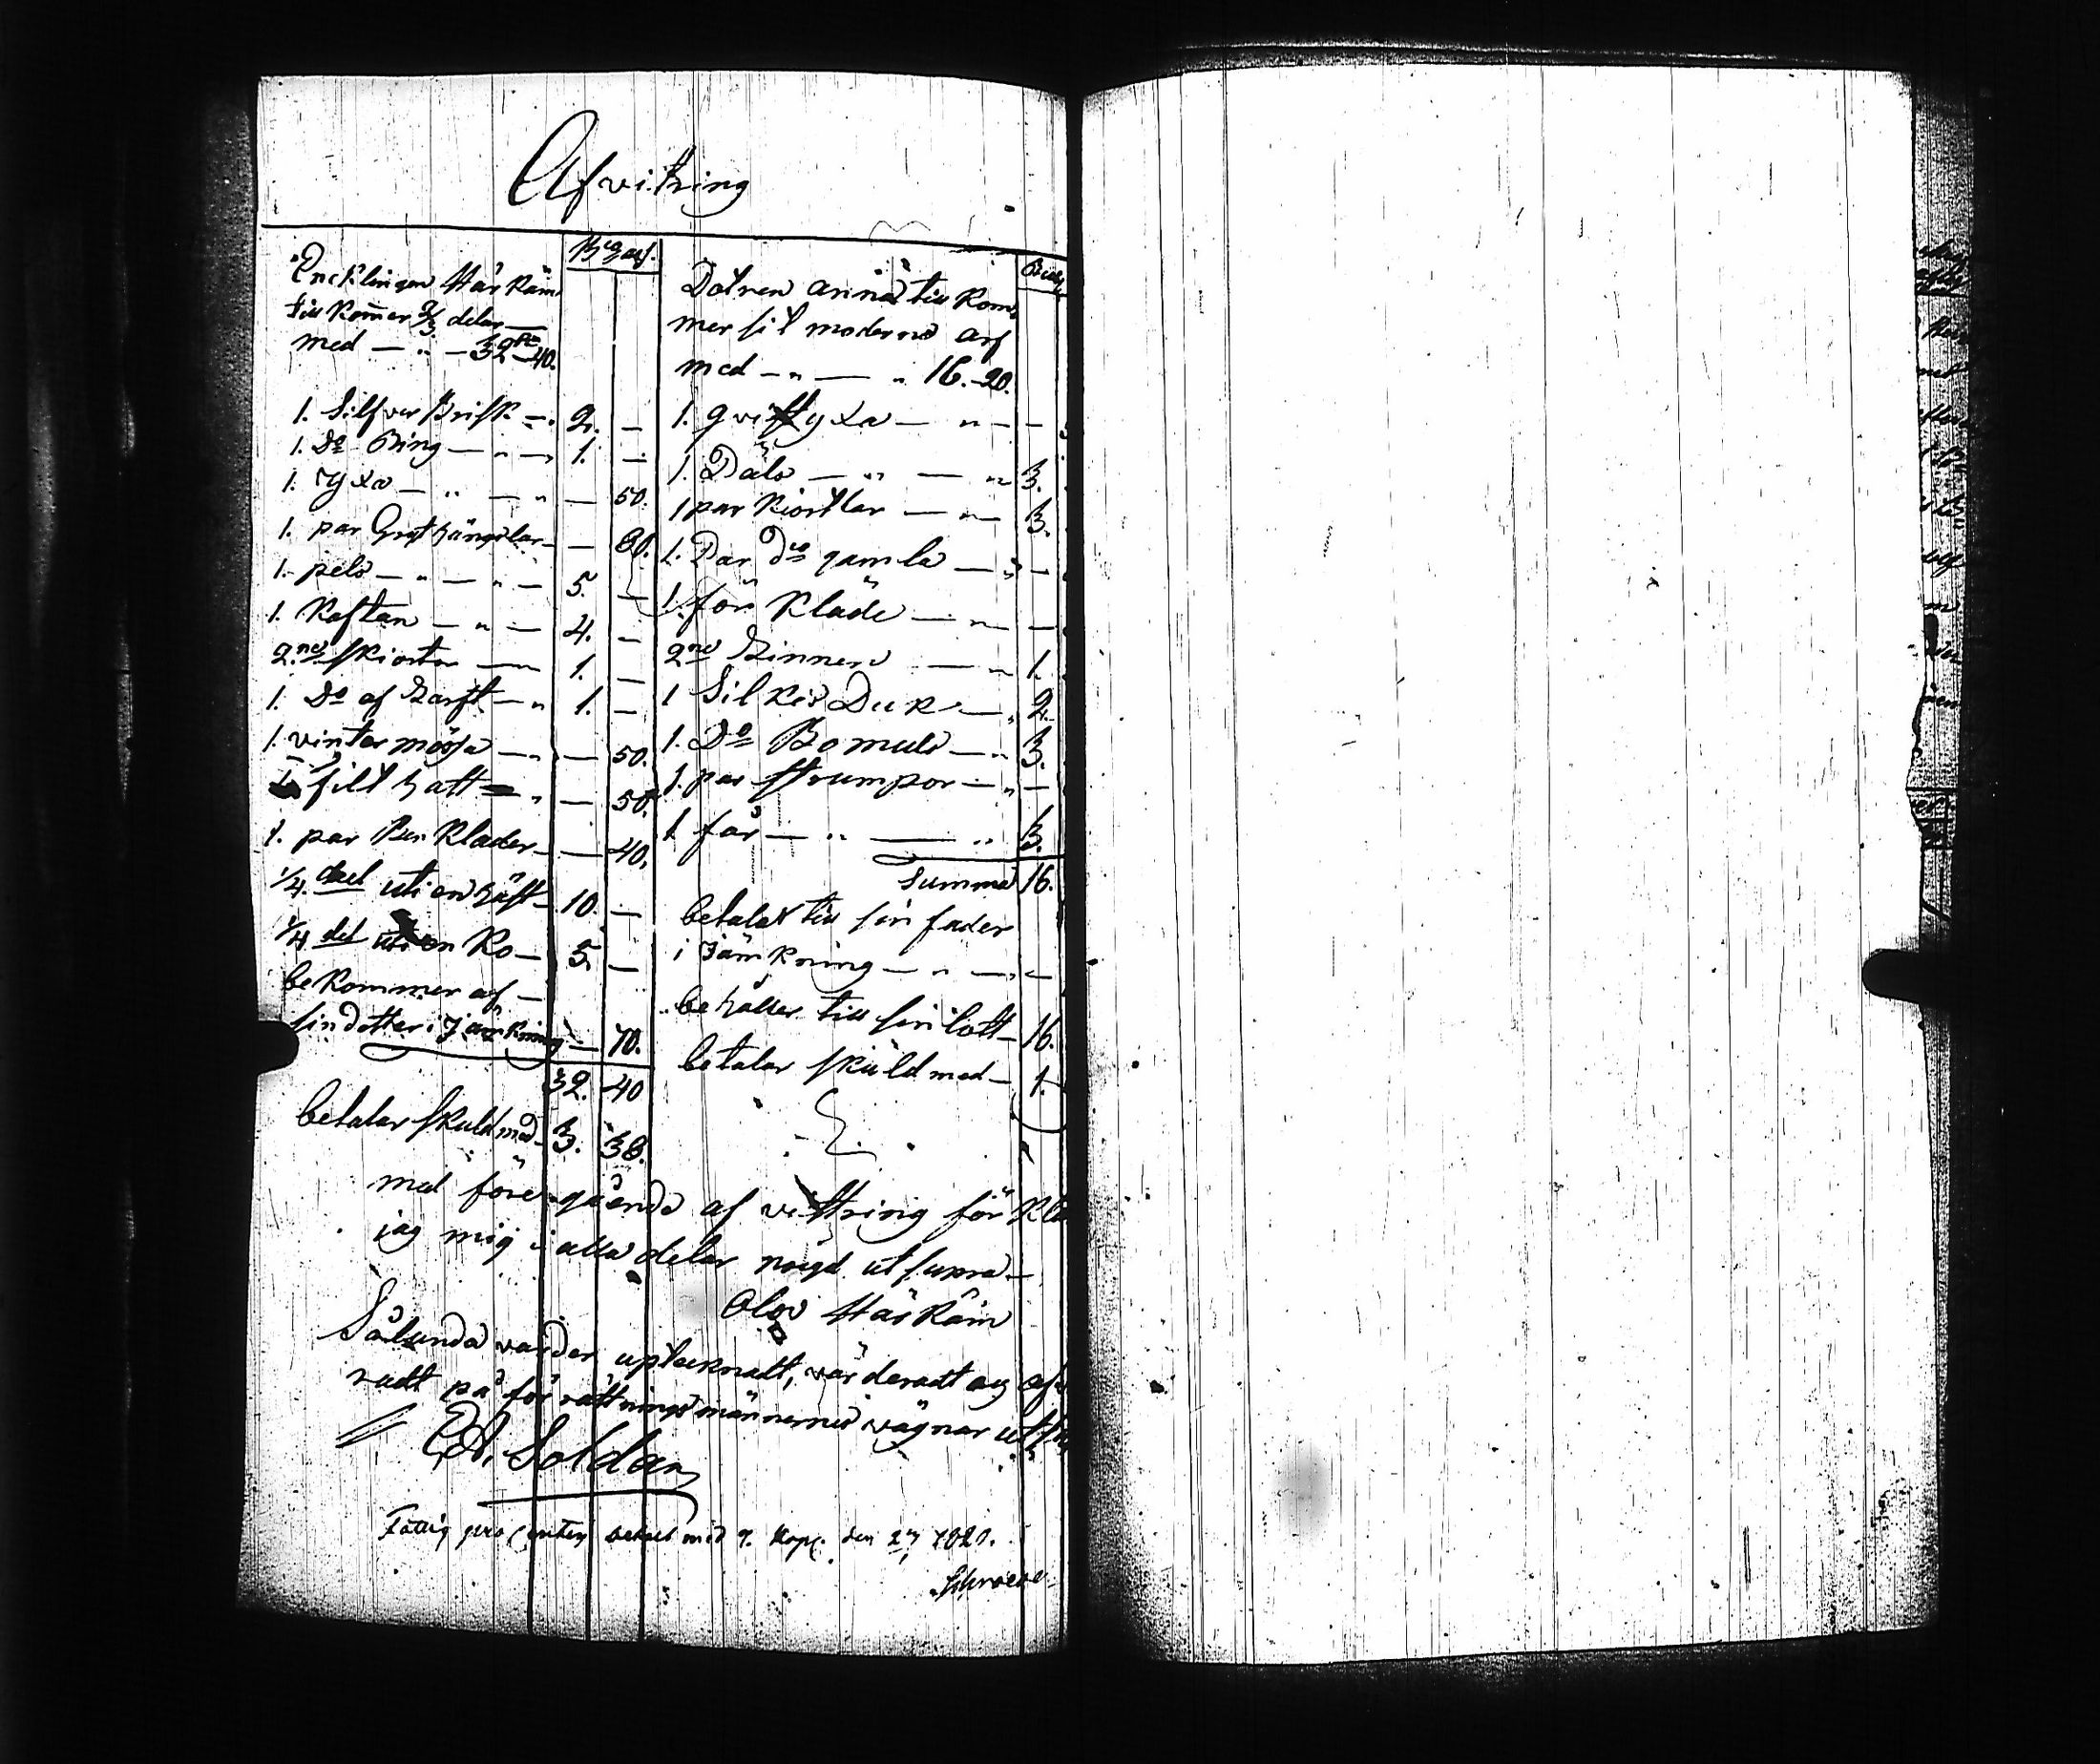 Afvitring
Bco Rd.
Encklingen Härkäin
till kommer 2/3 delar —
med — „ — 32 — 40.
1. Silfver Brisk — 2. —
1. Do Ring — „ — 1. —
1. Yxa — „ — „ — 50.
1. par Grythängslor — — 80.
1. pels — „ — „ — 5. —
1. Kaftan — „ — 4. —
2ne skiortor — 1. —
1. Do af Harft — „ 1. —
1. vinter mössa — — 50.
1 filt hatt — „ — 50.
1. par Benkläder — — 40.
1/4 del uti en häst — 10. —
1/4 del uti en Ko — 5. —
bekommer af —
sin dotter i Jämkning — 70.
32. 40
betalar skuld med — 3. 38.
Dotren anna till kom
mer sit moderne arf
med — „ — „ 16. 20.
1. qvistyxa — „ — —
1. Päls — „ — „ 3.
1 par Kiortlar — „ — 3.
1. Par do gamla — „ —
1. för kläde — „ — —
2ne Linnen — „ 1.
1 Silkes Duk — „ 2.
1. Do Bomuls — „ 3.
1. par strumpor — „ —
1 får — „ — „ 3.
Summa 16.
betalat till sin fader
i Jämkning — „ — —
behåller till sin lott — 16.
betalar skuld med — 1.
med föregående af vittring för kla
jag mig i alla delar nöyd ut supra —
Olov Härkäin
Sålunda varder uptecknatt, värderadt och af
radt på för rättningsmännernes vägnar ut
E. A. Soldan
Fattig pro centen betalt med 9. Kop. den 2/7 1821.